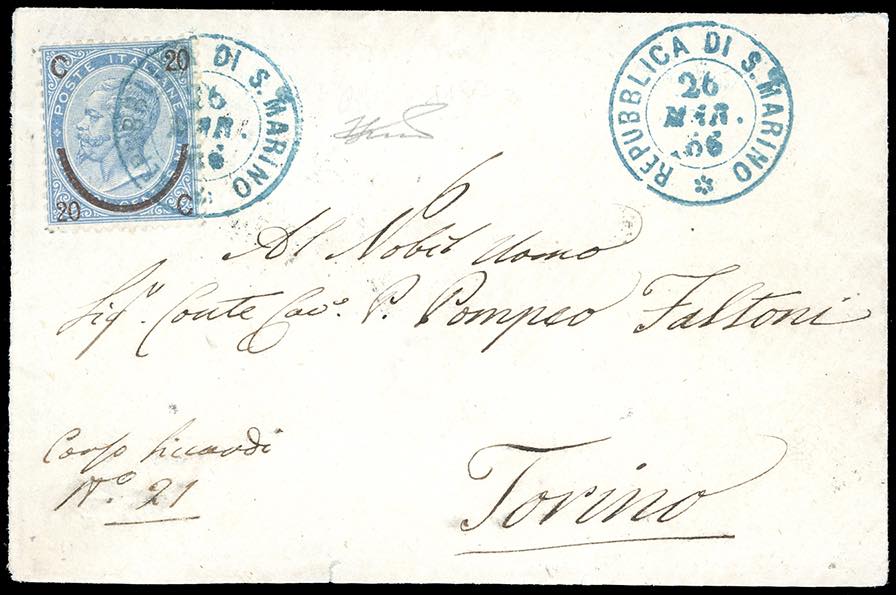 C 20
POSTE ITALIANE
20 C
DI S. MARINO
26
MAR.
66
REPUBBLICA DI S. MARINO
26
MAR.
66
Al Nobil Uomo
Sigr. Conte Cavo. P. Pompeo Faltoni
Corso Siccardi
No. 21
Torino